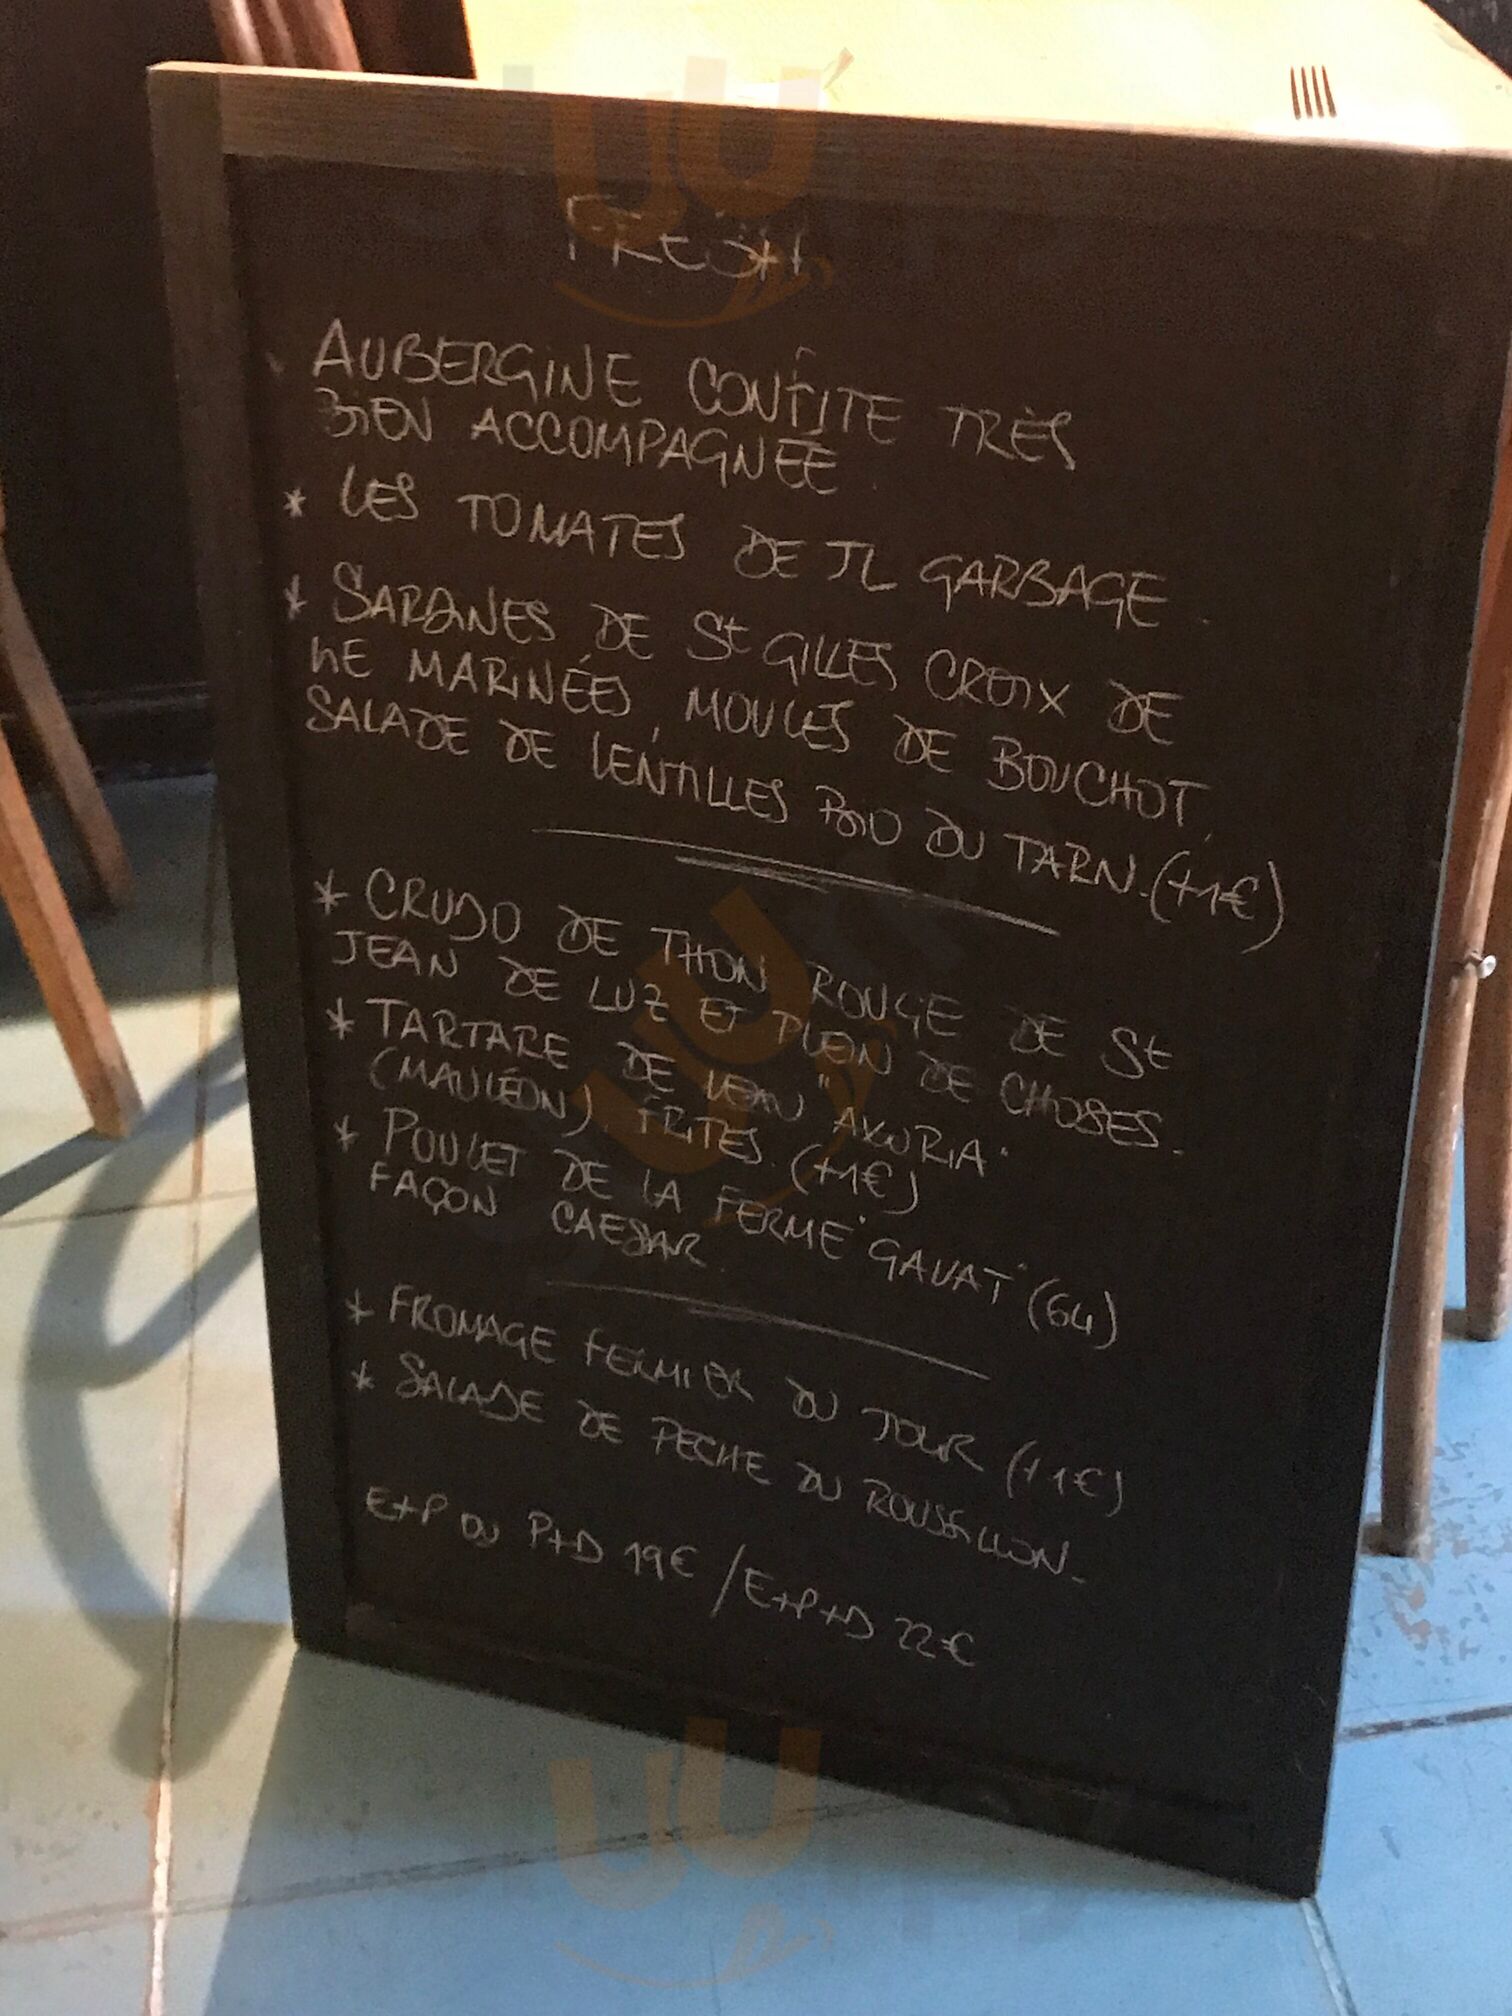 FRESH
AUBERGINE CONFITE TRÈS
BIEN ACCOMPAGNÉE.
* LES TOMATES DE JL GARBAGE.
* SARDINES DE St GILLES CROIX DE
MARINÉES, MOULES DE BOUCHOT,
SALADE DE LENTILLES BIO DU TARN. (+1€)
* CRUDO DE THON ROUGE DE St
JEAN DE LUZ ET PLEIN DE CHOSES.
* TARTARE DE VEAU "AXURIA"
(MAULÉON), FRITES. (+1€)
* POULET DE LA FERME "GAVAT" (64)
FAÇON CAESAR.
* FROMAGE FERMIER DU JOUR (+1€)
* SALADE DE PECHE DU ROUSSILLON.
E+P OU P+D 19€ / E+P+D 22€